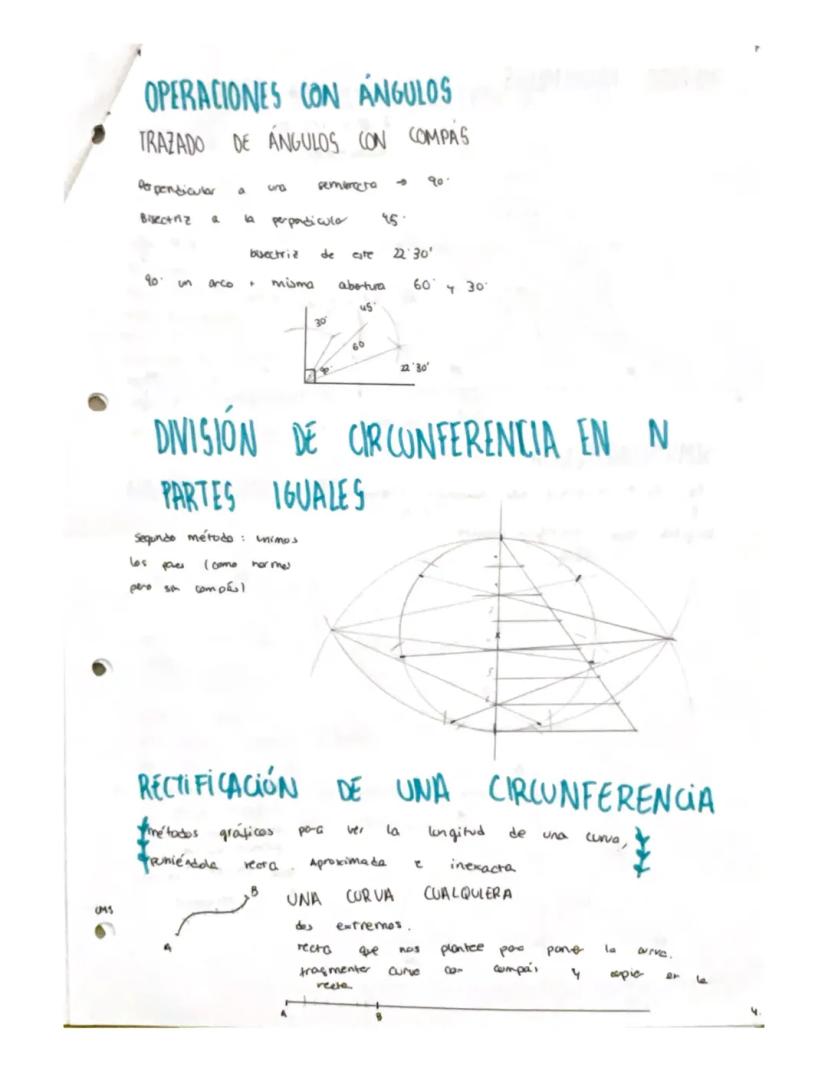 OPERACIONES CON ÁNGULOS
TRAZADO DE ÁNGULOS CON COMPÁS
Perpendicular a una semirrecta → 90°
Bisectriz a la perpendicular 45°
bisectriz de este 22°30'
90° un arco + misma abertura 60° y 30°
45°
30°
60
90°
22°30'
DIVISIÓN DE CIRCUNFERENCIA EN N
PARTES IGUALES
Segundo método: unimos
los pares (como
pero sin compás)
RECTIFICACIÓN DE UNA CIRCUNFERENCIA
métodos gráficos para ver la longitud de una curva,
poniéndola recta. Aproximada e inexacta
B
UNA CURVA CUALQUIERA
A
dos extremos.
recta que nos plantee para poner la curva.
fragmentar curva con compás y copiar en la
recta
A B
4.